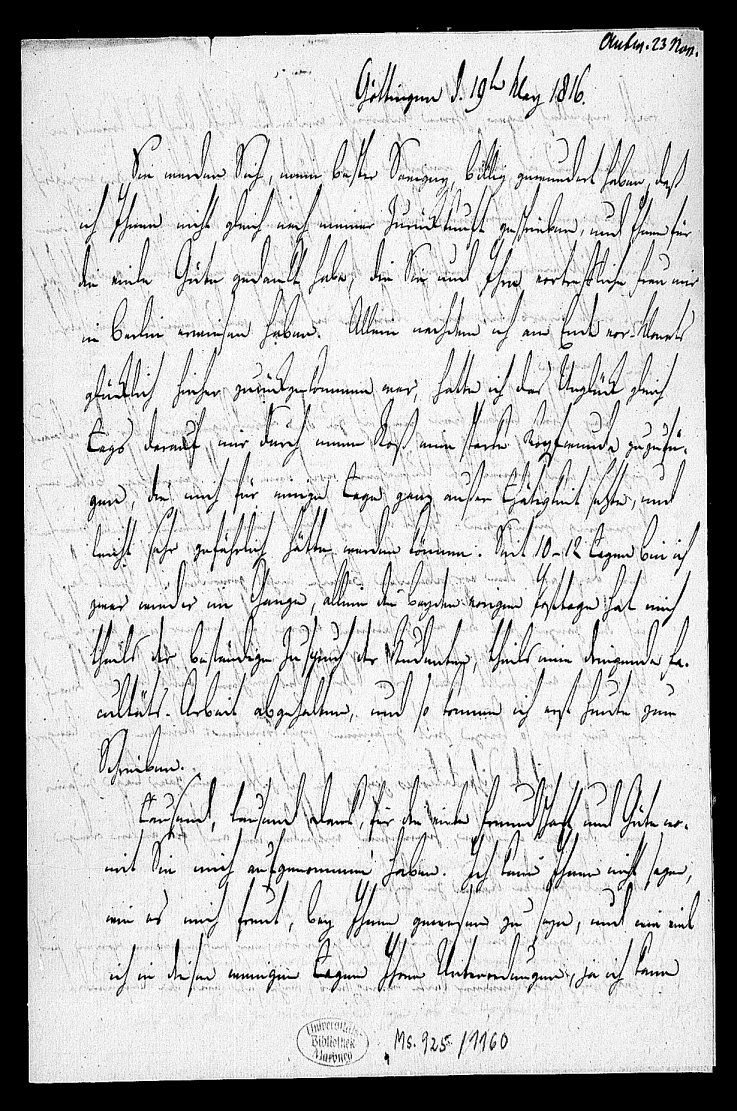 Antw. 23 Nov.
Göttingen d. 19t May 1816.
Sie werden Sich, mein bester Savigny, billig gewundert haben, daß
ich Ihnen nicht gleich nach meiner Zurückkunft geschrieben, und Ihnen für
die viele Güte gedankt habe, die Sie und Ihre vortreffliche Frau mir
in Berlin erwiesen haben. Allein nachdem ich am Ende vor. Monats
glücklich hieher zurückgekommen war, hatte ich das Unglück gleich
Tags darauf mir durch mein Roß eine starke Kopfwunde zuzufü-
gen, die mich für einige Tage ganz außer Thätigkeit setzte, und
leicht sehr gefährlich hätte werden können. Seit 10-12 Tagen bin ich
zwar wieder im Gange, allein die beyden vorigen Posttage hat mich
theils der beständige Zuspruch der Studenten, theils eine dringende Fa-
cultäts-Arbeit abgehalten, und so komme ich erst heute zum
Schreiben.
Tausend, tausend Dank, für die viele Freundschaft und Güte wo-
mit Sie mich aufgenommen haben. Ich kann Ihnen nicht sagen,
wie es mich freut, bey Ihnen gewesen zu seyn, und wie viel
ich in diesen wenigen Tagen Ihren Unterredungen, ja ich kann
Universitäts-
Bibliothek
Marburg
Ms. 925/1160